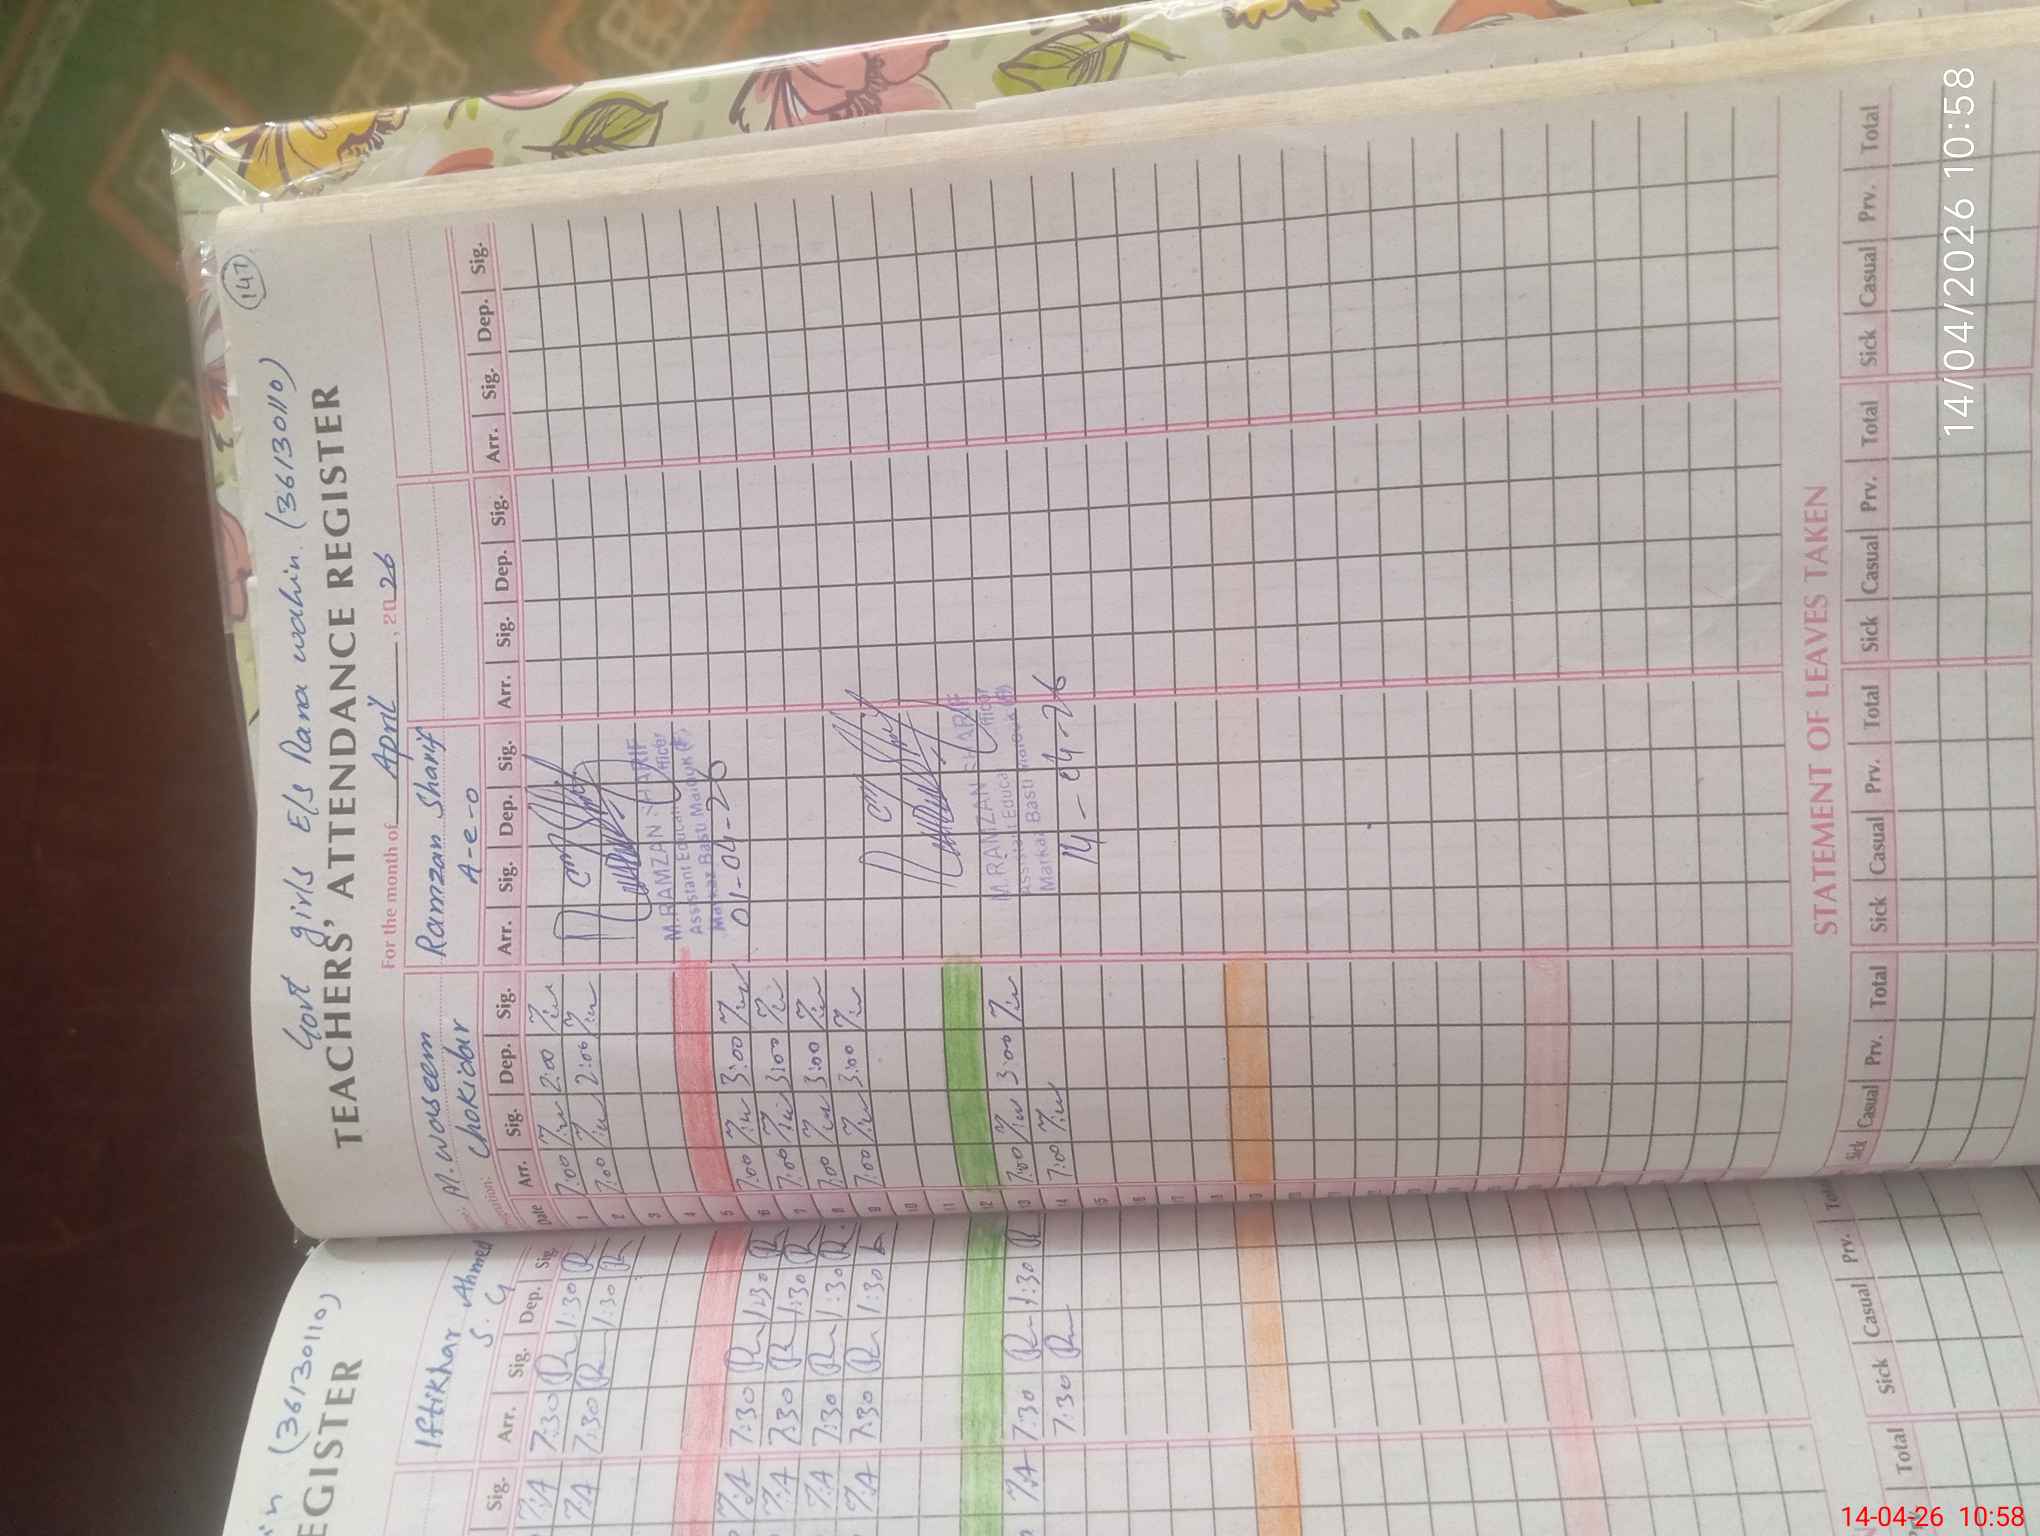 147
Govt girls E/S Rana wahin. (36130110)
TEACHERS' ATTENDANCE REGISTER
For the month of April, 2026
M. Waseem
Chokidar
Ramzan Sharif
A-e-o
Date Arr. Sig. Dep. Sig. Arr. Sig. Dep. Sig. Arr. Sig. Dep. Sig. Arr. Sig. Dep. Sig.
1 7:00 2:00
2 7:00 2:00
3
4
5
6 7:00 3:00
7 7:00 3:00
8 7:00 3:00
9 7:00 3:00
10
11
12
13 7:00 3:00
14 7:00
15
16
17
18
19
M. RAMZAN SHARIF
Assistant Education Officer
Markaz Basti Malook (F)
01-04-26
M. RAMZAN SHARIF
Assistant Education Officer
Markaz Basti Malook (F)
14-04-26
STATEMENT OF LEAVES TAKEN
Sick Casual Prv. Total Sick Casual Prv. Total Sick Casual Prv. Total Sick Casual Prv. Total
(36130110)
EGISTER
Iftikhar Ahmed
S. G
Sig. Arr. Sig. Dep. Sig.
7:30 1:30
7:30 1:30
7:30 1:30
7:30 1:30
7:30 1:30
7:30 1:30
7:30 1:30
7:30
Total Sick Casual Prv. Total
14/04/2026 10:58
14-04-26 10:58